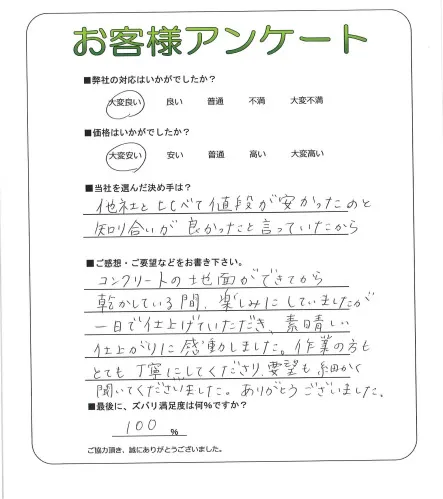 お客様アンケート
■弊社の対応はいかがでしたか？
大変良い 良い 普通 不満 大変不満
■価格はいかがでしたか？
大変安い 安い 普通 高い 大変高い
■当社を選んだ決め手は？
他社と比べて値段が安かったのと
知り合いが良かったと言っていたから
■ご感想・ご要望などをお書き下さい。
コンクリートの土地面ができてから
乾かしている間、楽しみにしていましたが
一日で仕上げていただき、素晴しい
仕上がりに感動しました。作業の方も
とても丁寧にしてくださり、要望も細かく
聞いてくださいました。ありがとうございました。
■最後に、ズバリ満足度は何%ですか？
100 %
ご協力頂き、誠にありがとうございました。